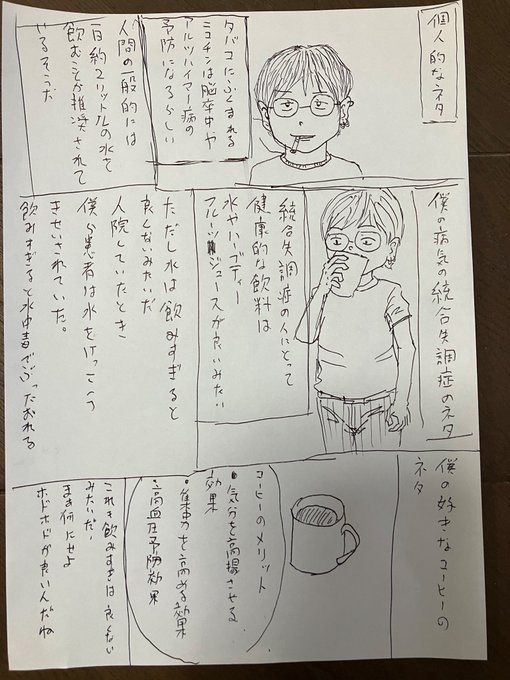 個人的なネタ
タバコにふくまれる
ニコチンは脳卒中や
アルツハイマー病の
予防になるらしい
人間の一般的には
一日約2リットルの水を
飲むことが推奨されて
いるそうだ
僕の病気の統合失調症のネタ
統合失調症の人にとって
健康的な飲料は
水やハーブティー
フルーツジュースが良いみたい
ただし水は飲みすぎると
良くないみたいだ
入院していたとき
僕ら患者は水をけっこう
きせいされていた。
飲みすぎると水中毒でぶったおれる
僕の好きなコーヒーの
ネタ
コーヒーのメリット
効果
・気分を高揚させる
・集中力を高める効果
・高血圧予防効果
これも飲みすぎは良くない
みたいだ。
まあ何にせよ
ホドホドが良いんだね